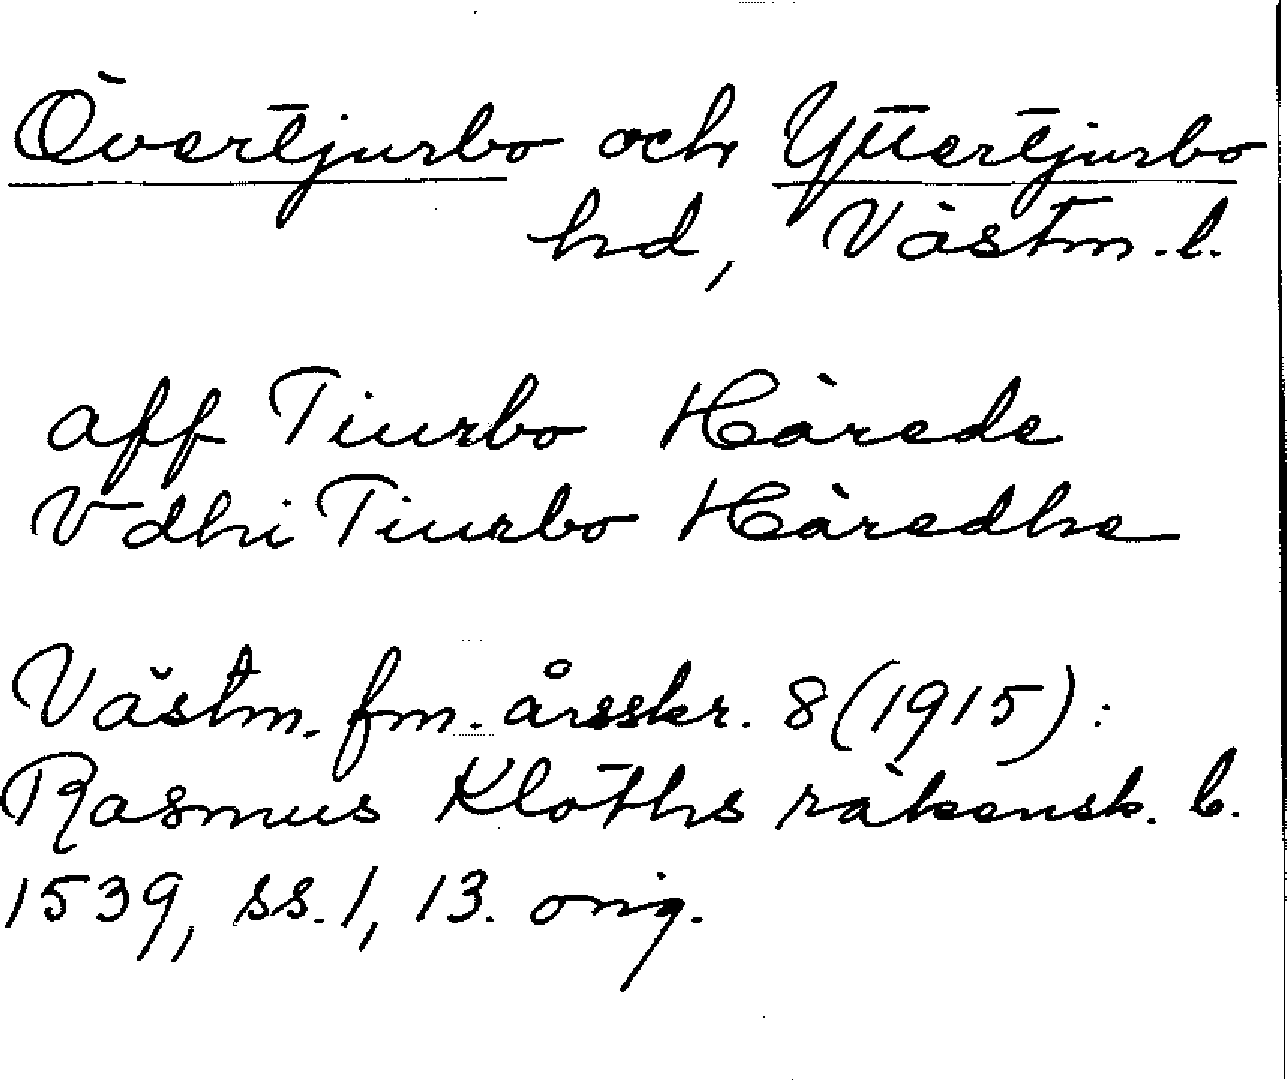 Övertjurbo och Yttertjurbo
hd, Västm. l.
aff Tiurbo Härede
Vdhi Tiurbo Häredhe
Västm. fm. årsskr. 8 (1915):
Rasmus Klöths räkensk. b.
1539, ss. 1, 13. orig.